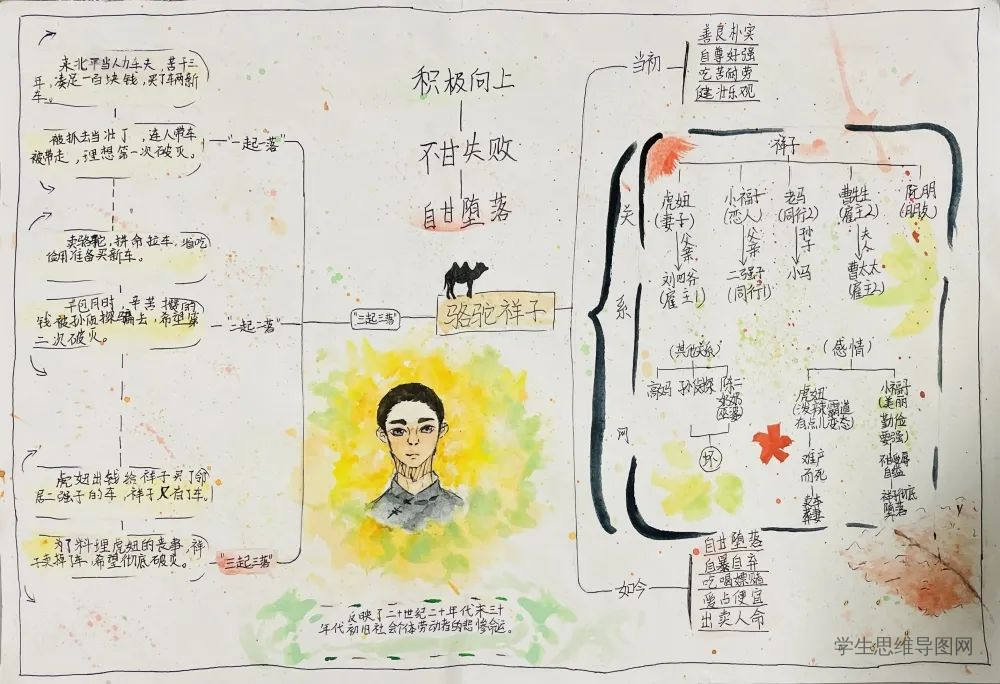 来北平当人力车夫,苦干三
年,凑足一百块钱,买了车两新
车。
被抓去当壮丁,连人带车
被带走,理想第一次破灭。
"一起一落"
卖骆驼,拼命拉车,省吃
俭用准备买新车。
干包月时,辛苦攒的
钱被孙侦探骗去,希望第
二次破灭。
"二起二落"
虎妞出钱给祥子买了邻
居二强子的车,祥子又有了车。
为了料理虎妞的丧事,祥
子卖掉了车,希望彻底破灭。
"三起三落"
积极向上
不甘失败
自甘堕落
"三起三落"
骆驼祥子
反映了二十世纪二十年代末三十
年代初旧社会个体劳动者的悲惨命运。
当初
善良朴实
自尊好强
吃苦耐劳
健壮乐观
关
系
网
祥子
虎妞
(妻子)
父亲
刘四爷
(雇主1)
小福子
(恋人)
父亲
二强子
(同行1)
老马
(同行2)
孙子
小马
曹先生
(雇主2)
夫人
曹太太
(雇主2)
阮明
(朋友)
(其他关系)
高妈
孙侦探
陈二
奶奶
(巫婆)
坏
(感情)
虎妞
(泼辣霸道
有点儿变态)
难产
而死
卖车
葬妻
小福子
(美丽
勤俭
要强)
自缢
祥子彻底
堕落
如今
自甘堕落
自暴自弃
吃喝嫖赌
爱占便宜
出卖人命
学生思维导图网